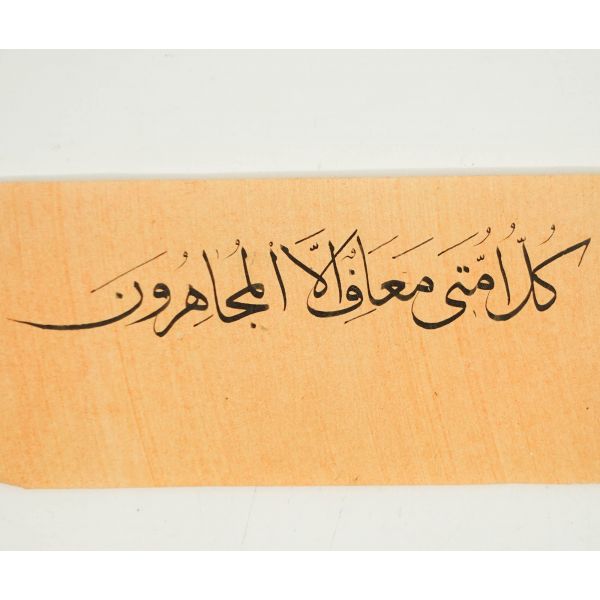 كُلُّ اُمَّتِى مَعَافٌ اِلَّا الْمُجَاهِرُونَ